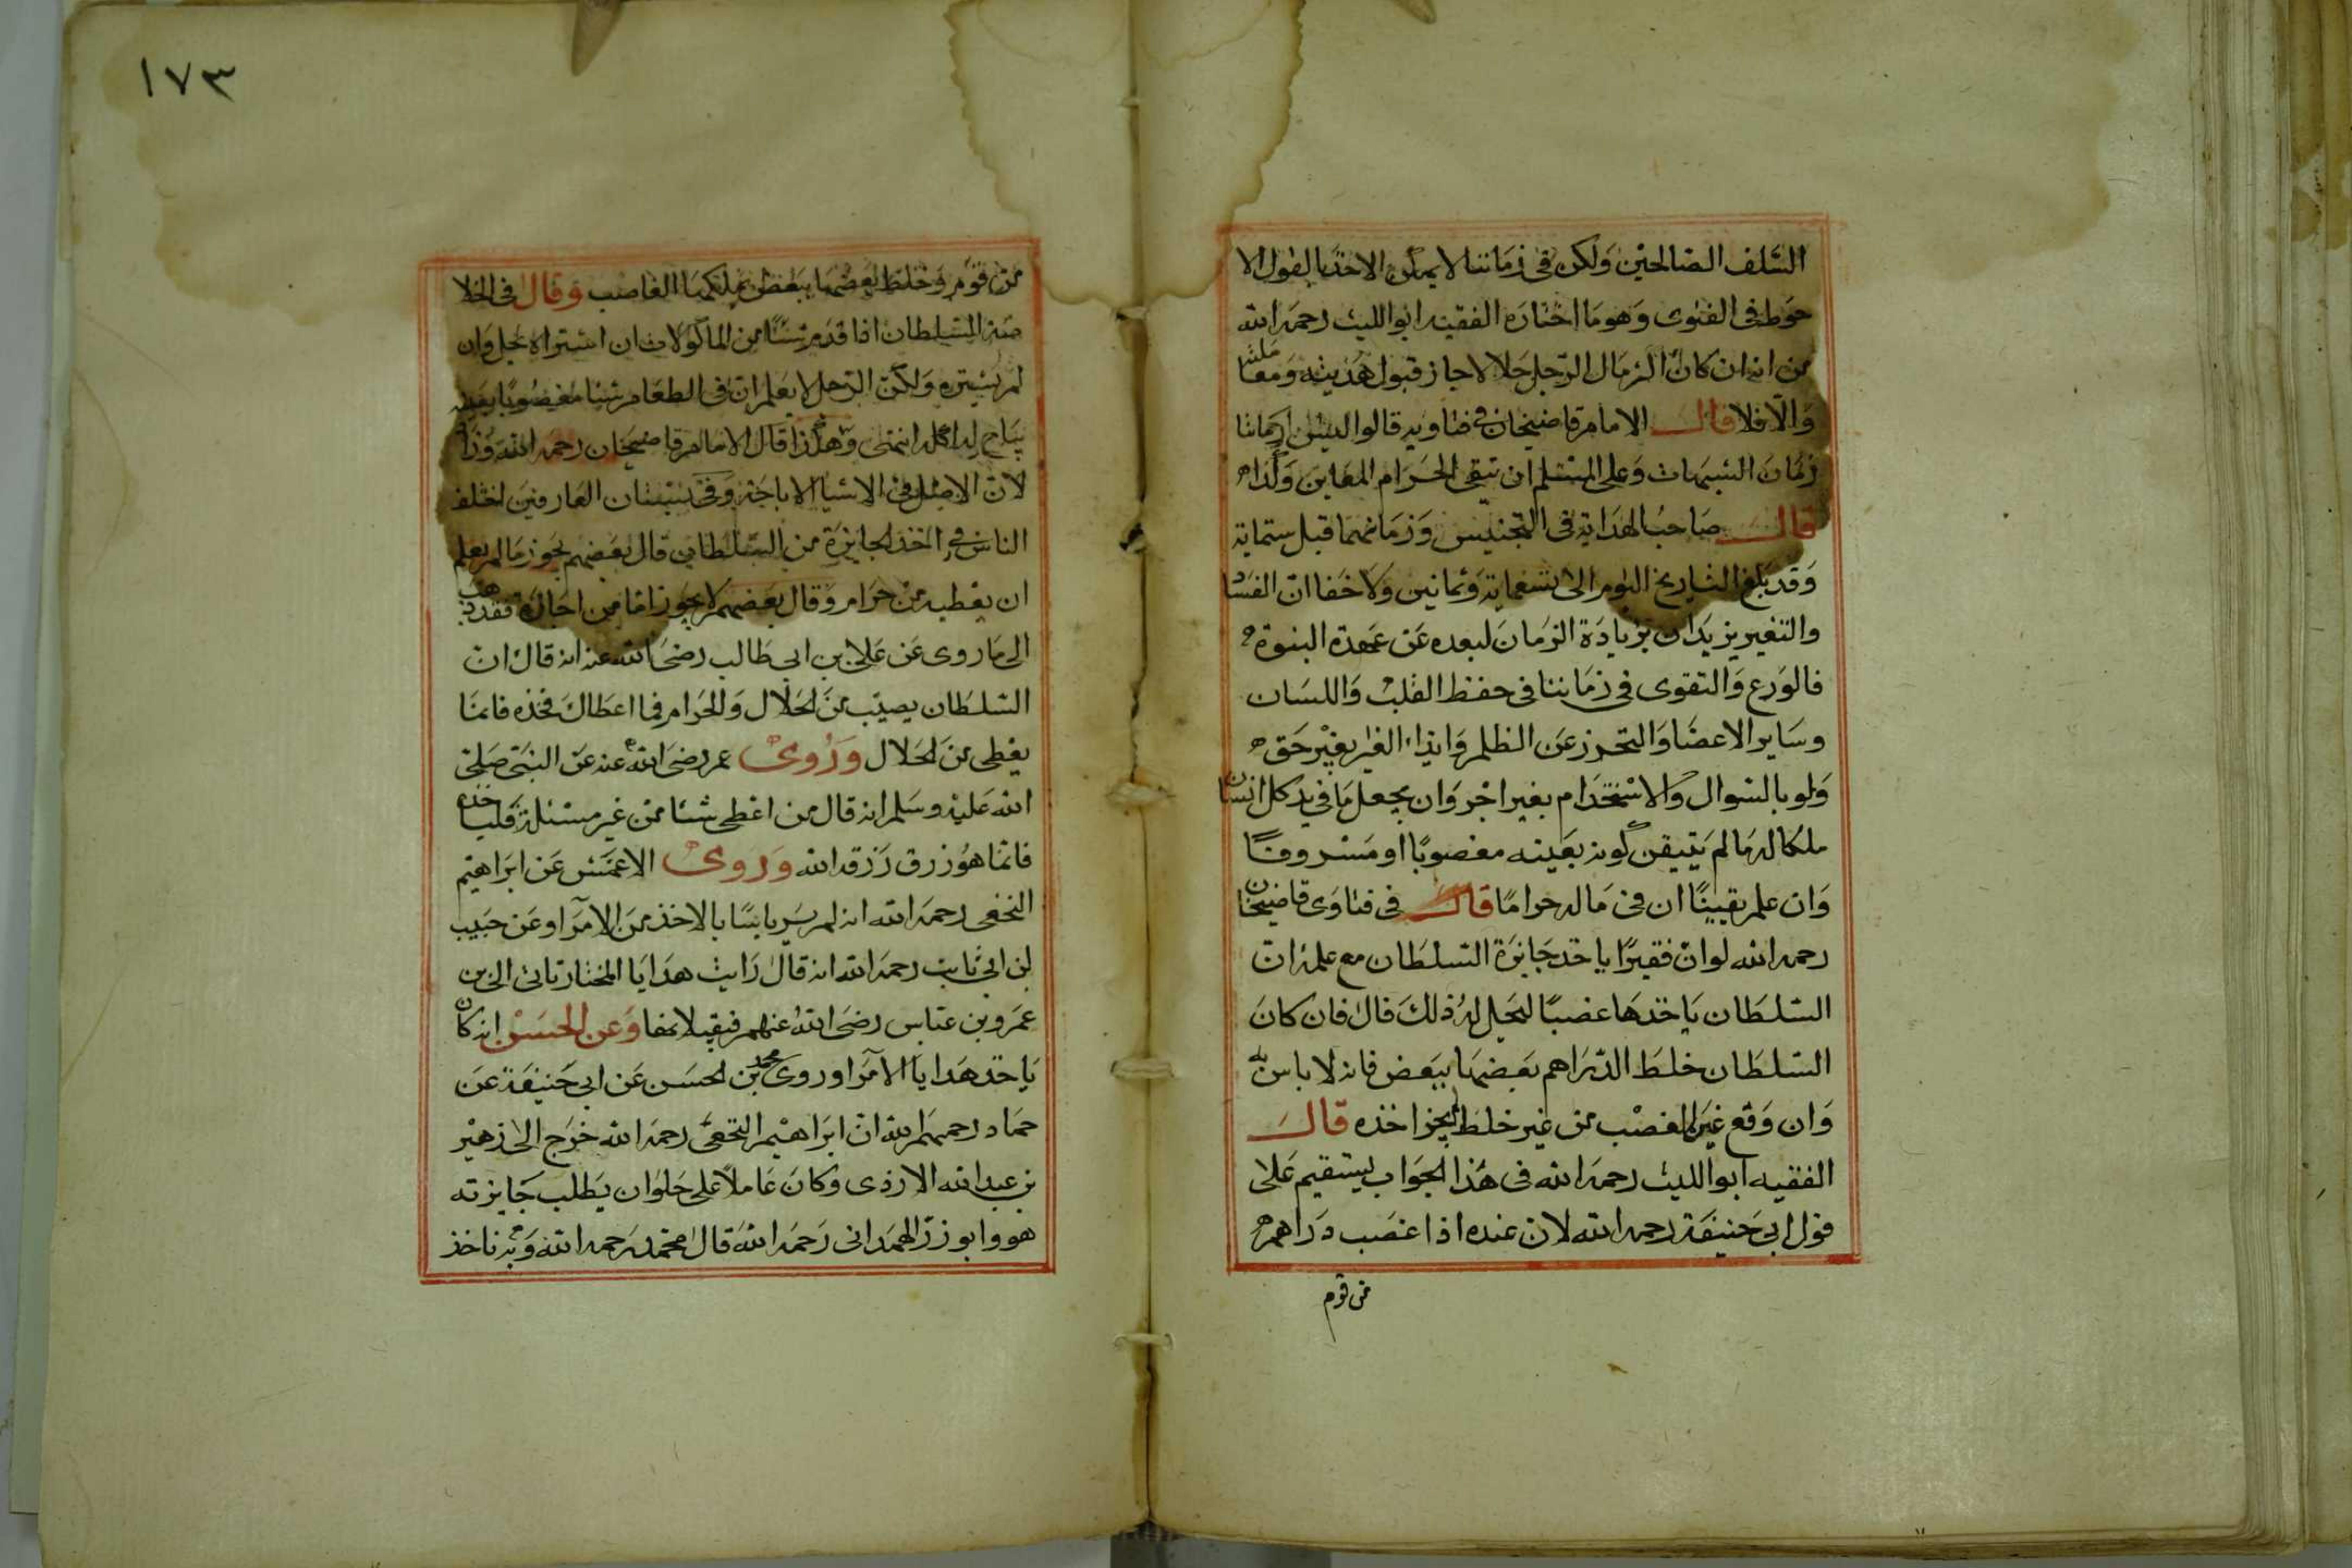 السلف الصالحين ولكن في زماننا لا يمكن الاخذ بالقول الا
حوط في الفتوى وهو ما اختاره الفقيه ابو الليث رحمه الله
من انه ان كان اكثر مال الرجل حلالا جاز قبول هديته ومعا ملته
والا فلا قال الامام قاضيخان في فتاويه قالوا ليس زماننا
زمان الشبهات وعلى المسلم ان يتقي الحرام المعاين وكذا
قال صاحب الهداية في التجنيس وزمانهما قبل ستماية
وقد بلغ التاريخ اليوم الى تسعماية وثمانين ولا خفا ان الفساد
والتغير يزيدان بزيادة الزمان لبعده عن عهدة النبوة
فالورع والتقوى في زماننا في حفظ القلب واللسان
وساير الاعضا والتحرز عن الظلم وايذاء الغير بغير حق
ولو بالسوال والاستخدام بغير اجر وان يجعل ما في يد كل انسان
ملكا له ما لم يتيقن كونه بعينه مغصوبا او مسروقا
وان علم يقيينا ان في ماله حراما قال في فتاوى قاضيخان
رحمه الله لو ان فقيرا ياخذ جايزة السلطان مع علمه ان
السلطان ياخذها غصبا ليحل له ذلك قال فان كان
السلطان خلط الدراهم بعضها ببعض فانه لا باس به
وان وقع غير الغصب من غير خلط لم يجز اخذه قال
الفقيه ابو الليث رحمه الله في هذا الجواب ليستقيم على
قول ابي حنيفة رحمه الله لان عنده اذا غصب دراهم
من قوم
١٧٣
من قوم وخلط بعضها ببعض يملكها الغاصب وقال في الخلا
صة السلطان اذا قدم شيئا من الماكولات ان اشتراه يحل وان
لم يشتره ولكن الرجل لا يعلم ان في الطعام شيئا مغصوبا بعينه
يباح له اكله انتهى وهكذا قال الامام قاضيخان رحمه الله وزاد
لان الاصل في الاشيا الاباحة وفي بستان العارفين اختلف
الناس في اخذ الجايزة من السلطان قال بعضهم يجوز ما لم يعلم
ان يعطيه من حرام وقال بعضهم لا يجوز اما من اجازه فقد ذهب
الى ما روى عن علي بن ابي طالب رضي الله عنه انه قال ان
السلطان يصيب من الحلال والحرام فما اعطاك فخذه فانما
يعطي من الحلال وروى عمر رضي الله عنه عن النبي صلى
الله عليه وسلم انه قال من اعطي شيئا من غير مسئلة فلياخذه
فانما هو رزق رزقه الله وروى الاعمش عن ابراهيم
النخعي رحمه الله انه لم ير باسا بالاخذ من الامرا وعن حبيب
بن ابي ثابت رحمه الله انه قال رايت هدايا المختار تاتي الى بن
عمر وبن عباس رضي الله عنهم فيقبلانها وعن الحسن انه كان
ياخذ هدايا الامرا وروى محمد بن الحسن عن ابي حنيفة عن
حماد رحمهم الله ان ابراهيم النخعي رحمه الله خرج الى زهير
بن عبد الله الازدي وكان عاملا على حلوان يطلب جايزته
هو وابو ذر الهمداني رحمه الله قال محمد رحمه الله وبه ناخذ